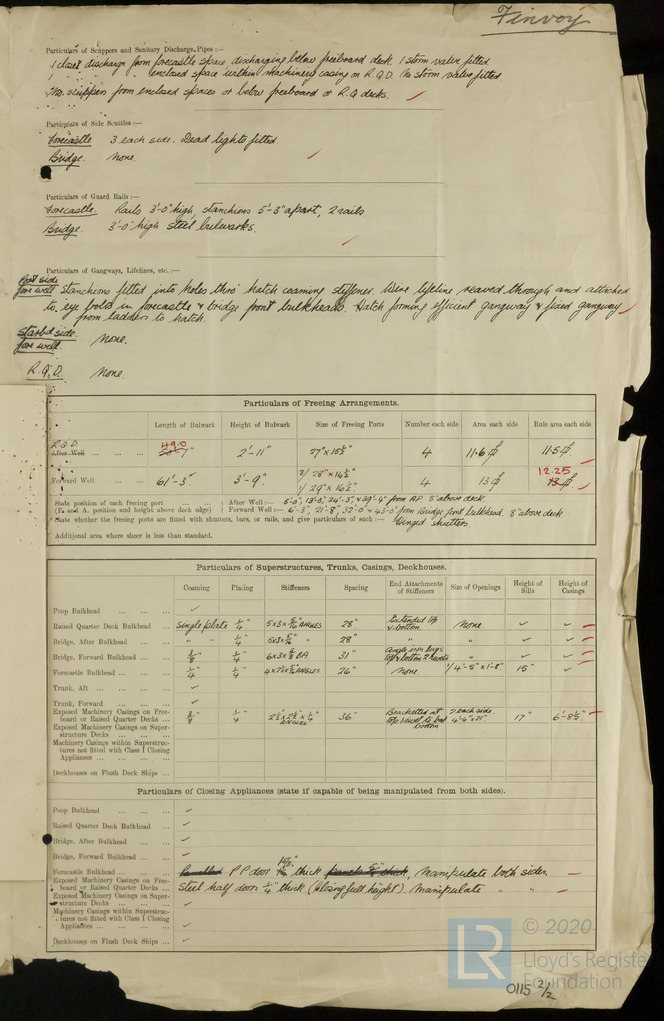 Finvoy
Particulars of Scuppers and Sanitary Discharge Pipes :—
1 closet discharge from forecastle space discharging below freeboard deck. 1 storm valve fitted
" enclosed space within machinery casing on R.Q.D. storm valve fitted.
No scuppers from enclosed spaces at below freeboard or R.Q decks.
Particulars of Side Scuttles :—
Forecastle 3 each side. Dead lights fitted
Bridge. None.
Particulars of Guard Rails :—
Forecastle. Rails 3'-0" high, stanchions 5'-3" apart, 2 rails
Bridge. 3'-0" high steel bulwarks.
Particulars of Gangways, Lifelines, etc. :—
Port side
fore well Stanchions fitted into holes thro' hatch coaming stiffener. Wire lifeline reaved through and attached
to eye bolts in forecastle & bridge front bulkheads. Hatch forming efficient gangway & fixed gangway
from ladders to hatch.
Starb'd side.
fore well. None.
R.Q.D. None.
Particulars of Freeing Arrangements.
Length of Bulwark Height of Bulwark Size of Freeing Ports Number each side Area each side Rule area each side
R.Q.D. 49.0
After Well ... ... ... 2'-11" 27" x 15½" 4 11.6 11.5
Forward Well ... ... 61'-3" 3'-9" 3/ 28" x 16½" 4 13 12.25
1/ 29" x 16½" 13
State position of each freeing port ... ... ... After Well :— 6'-0", 13'-0", 26'-3", & 39'-4" from A.P. 8" above deck
(F. and A. position and height above deck edge) Forward Well :— 6'-3", 21'-8", 32'-0" & 43'-0" from Bridge front bulkhead. 8" above deck
State whether the freeing ports are fitted with shutters, bars, or rails, and give particulars of such :— Hinged shutters.
Additional area where sheer is less than standard.
Particulars of Superstructures, Trunks, Casings, Deckhouses.
Coaming Plating Stiffeners Spacing End Attachments of Stiffeners Size of Openings Height of Sills Height of Casings
Poop Bulkhead ... ... ...
Raised Quarter Deck Bulkhead ... Single plate ¼" 5x3x5/16" ANGLES 28" Extended top & bottom None.
Bridge, After Bulkhead ... ... " " ¼" 5x3x5/16" " 28" " "
Bridge, Forward Bulkhead ... ... 3/8" ¼" 6x3x3/8 BA 31" Angle iron lugs top & bottom 2 rivets "
Forecastle Bulkhead ... ... ¼" ¼" 4x2½x5/16" ANGLES 26" None. 1/ 4'-5" x 1'-8" 15"
Trunk, Aft ... ... ...
Trunk, Forward ... ... ...
Exposed Machinery Casings on Freeboard or Raised Quarter Decks ... 3/8" ¼" 2½" x 2½" x ¼" ANGLES 36" Bracketed at top 17" 6'-8½"
Exposed Machinery Casings on Superstructure Decks ... ... ...
Machinery Casings within Superstructures not fitted with Class I Closing Appliances ... ... ...
Deckhouses on Flush Deck Ships ...
Particulars of Closing Appliances (state if capable of being manipulated from both sides).
Poop Bulkhead ... ... ...
Raised Quarter Deck Bulkhead ...
Bridge, After Bulkhead ... ...
Bridge, Forward Bulkhead ... ...
Forecastle Bulkhead ... ... Panelled P P door thick panels thick, Manipulate both sides.
Exposed Machinery Casings on Freeboard or Raised Quarter Decks ... Steel half doors ¼" thick (closing full height). Manipulate " "
Exposed Machinery Casings on Superstructure Decks ... ... ...
Machinery Casings within Superstructures not fitted with Class I Closing Appliances ... ... ...
Deckhouses on Flush Deck Ships ...
LR © 2020
Lloyd's Registe
Foundation
0115 2/2